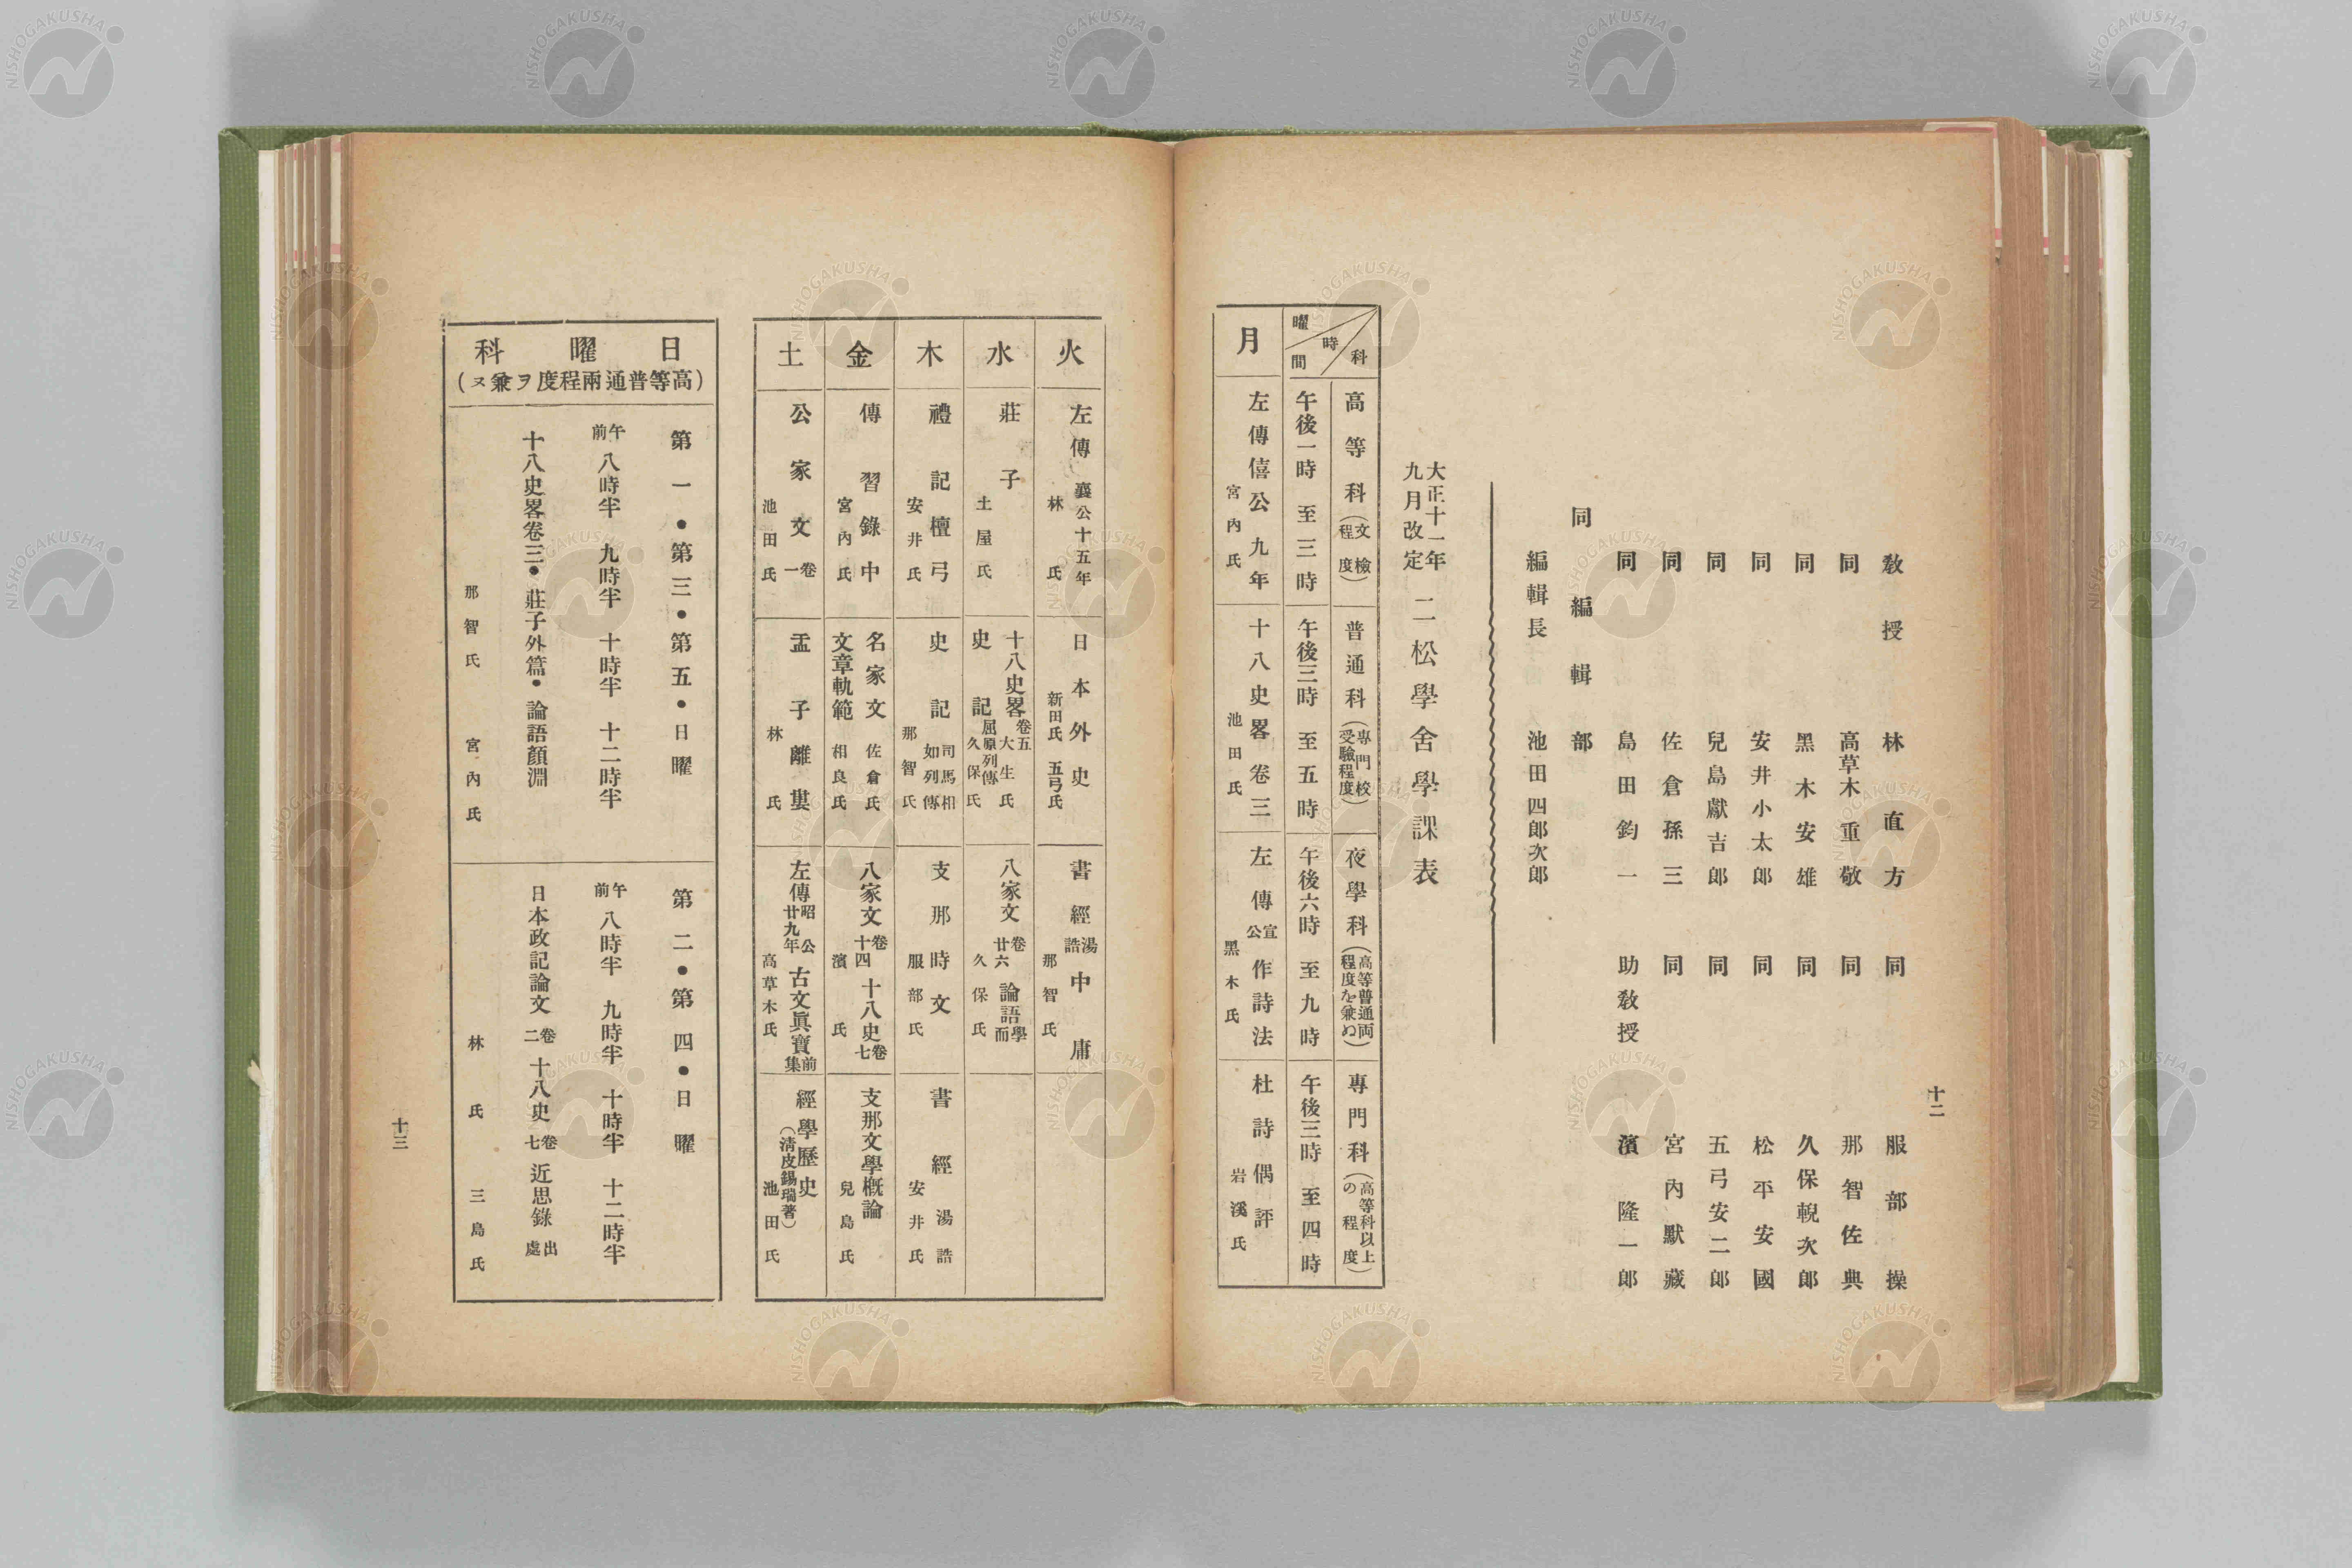 十二
教授　林直方　同　服部操
同　高草木重敬　同　那智佐典
同　黑木安雄　同　久保輗次郎
同　安井小太郎　同　松平安國
同　兒島獻吉郎　同　五弓安二郎
同　佐倉孫三　同　宮內默藏
同　島田鈞一　助教授　濱隆一郎
同編輯部
編輯長　池田四郎次郎
大正十一年九月改定　二松學舍學課表
科　時間　曜
高等科（文檢程度）　普通科（專門校受驗程度）　夜學科（高等普通両程度を兼ぬ）　專門科（高等科以上の程度）
午後一時至三時　午後三時至五時　午後六時至九時　午後三時至四時
月　左傳僖公九年　宮內氏　十八史畧卷三　池田氏　左傳宣公作詩法　黑木氏　杜詩偶評　岩溪氏
火　左傳襄公十五年　林氏　日本外史　新田氏　五弓氏　書經湯誥中庸　那智氏
水　莊子　土屋氏　十八史畧卷五　大生氏　史記屈原列傳　久保氏　八家文卷廿六　論語學而　久保氏
木　禮記檀弓　安井氏　史記司馬相如列傳　那智氏　支那時文　服部氏　書經湯誥　安井氏
金　傳習錄中　宮內氏　名家文　佐倉氏　文章軌範　相良氏　八家文卷十四　十八史卷七　濱氏　支那文學概論　兒島氏
土　公家文卷一　池田氏　孟子離婁　林氏　左傳昭公廿九年　古文眞寶前集　高草木氏　經學歷史（淸皮錫瑞著）　池田氏
日曜科
（高等普通兩程度ヲ兼ヌ）
第一・第三・第五・日曜
午前八時半　九時半　十時半　十二時半
十八史畧卷三・莊子外篇・論語顏淵
那智氏　宮內氏
第二・第四・日曜
午前八時半　九時半　十時半　十二時半
日本政記論文卷二　十八史卷七　近思錄出處
林氏　三島氏
十三
NISHOGAKUSHA